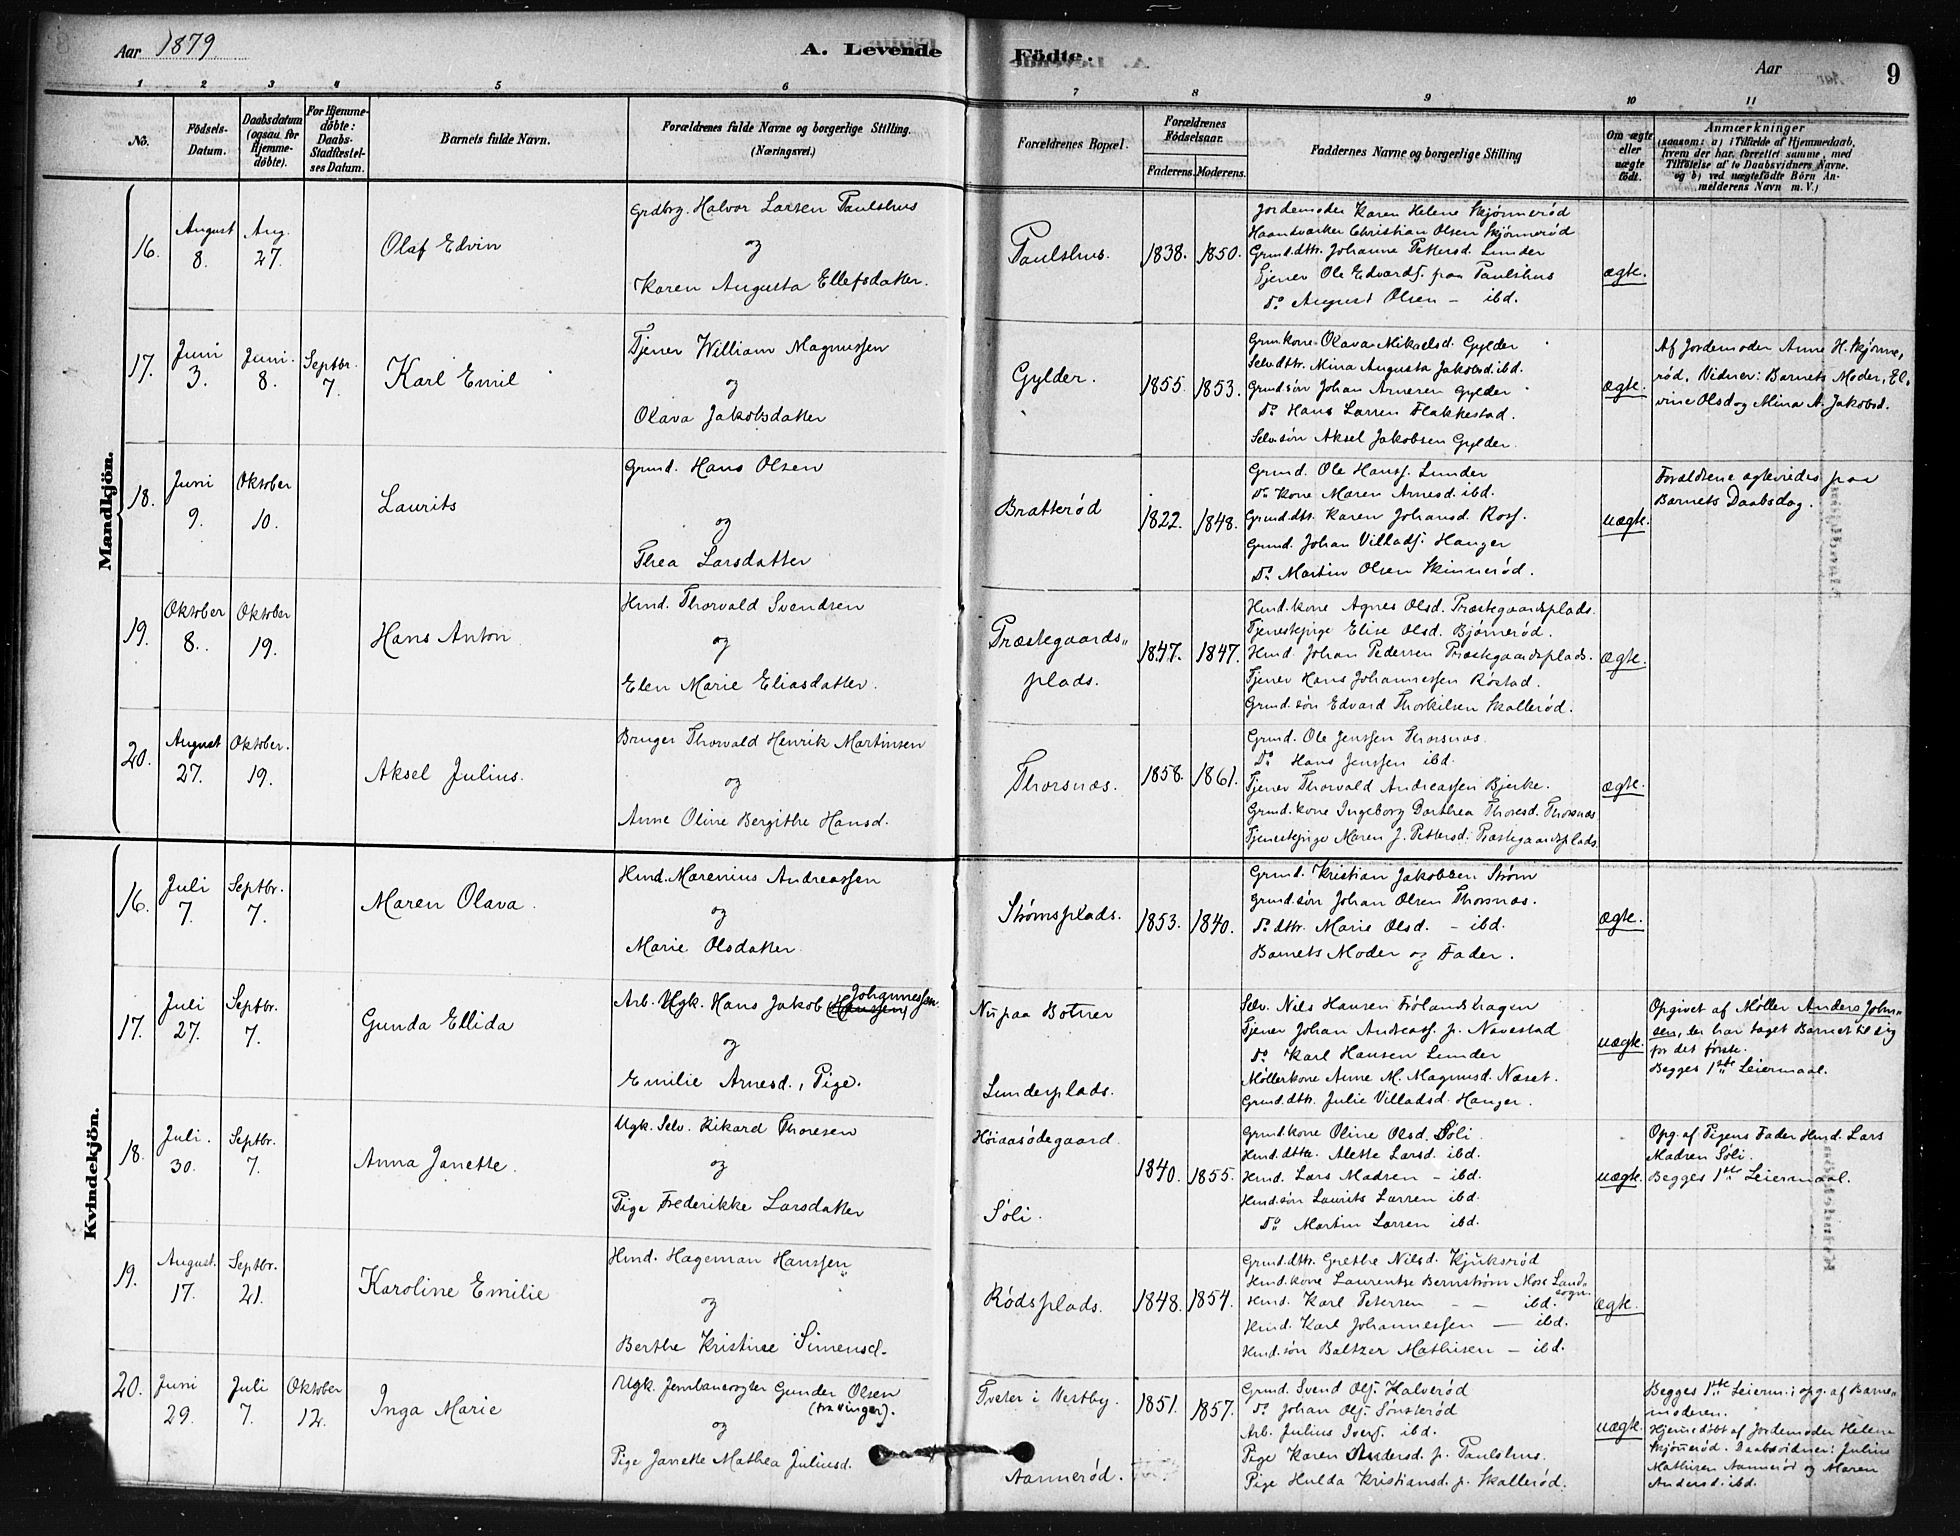 Aar 1879
A. Levende
Födte.
Aar
9
1 2 3 4 5 6 7 8 9 10 11
No.
Födsels-Datum.
Daabsdatum (ogsaa for Hjemmedöbte).
For Hjemmedöbte: Daabs-Stadfæstelses Datum.
Barnets fulde Navn.
Forældrenes fulde Navne og borgerlige Stilling.
(Næringsvei.)
Forældrenes Bopæl.
Forældrenes Födselsaar.
Faderens. Moderens.
Faddernes Navne og borgerlige Stilling
Om ægte eller uægte födt.
Anmærkninger
(saasom: a) i Tilfælde af Hjemmedaab, hvem der har forrettet samme, med Tilföielse af to Daabsvidners Navne. og b) ved uægtefödte Börn Anmelderens Navn m. V.)
Mandkjön.
16. August 8. Aug. 27. Olaf Edvin
Grdbrg. Halvor Larsen Paulshus
og
Karen Augusta Ellefsdatter.
Paulshus. 1838. 1850.
Jordemoder Karen Helene Skjønnerød
Haandværker Christian Olsen Skjønnerød
Grund.dttr. Johanne Pettersd. Lunder
Tjener Ole Edvardß. paa Paulshus
Do August Olsen – ibd.
ægte.
17. Juni 3. Juni. 8. Septbr. 7. Karl Emil
Tjener William Magnussen
og
Olava Jakobsdatter
Gylder. 1855. 1853.
Grun.kone Olava Mikaelsd. Gylder
Selv.dttr. Mina Augusta Jakobsd. ibd.
Grund.søn Johan Arnesen Gylder
Do Hans Larsen Flakkestad.
Selv.søn Aksel Jakobsen Gylder.
ægte.
Af Jordemoder Anne H. Skjønne-
rød. Vidner: Barnets Moder, El-
vine Olsd og Mina A. Jakobsd.
18. Juni 9. Oktober 10. Laurits
Grund. Hans Olsen
og
Thea Larsdatter
Bratterød 1822. 1848.
Grund. Ole Hansß. Lunder
Do Kone Maren Arnesd. ibd.
Grund.dttr. Karen Johansd. Rosß.
Grund. Johan Villadsß. Hanger
Do Martin Olsen Skinnerød.
uægte.
Forældrene ægteviedes paa
Barnets Daabsdag.
19. Oktober 8. Oktober 19. Hans Anton
Hmd. Thorvald Svendsen
og
Elen Marie Eliasdatter.
Præstegaards-
plads. 1847. 1847.
Hmd.kone Agnes Olsd. Præstegaardsplads.
Tjenestepige Elise Olsd. Bjørnerød.
Hmd Johan Pedersen Præstegaardsplads.
Tjener Hans Johannessen Røstad.
Grund.søn Edvard Thorkilsen Skallerød.
ægte.
20. August 27. Oktober. 19. Aksel Julius.
Bruger Thorvald Henrik Martinsen
og
Anne Oline Bergithe Hansd.
Thorsnæs. 1858. 1861.
Grund. Ole Jenssen Thorsnæs.
Do Hans Jenssen ibd.
Tjener Thorvald Andreassen Bjerke.
Grund.kone Ingeborg Dorthea Thoresd. Thorsnæs
Tjenestepige Maren J. Pettersd. Præstegaardsplads.
ægte.
Kvindekjön.
16. Juli 7. Septbr. 7. Maren Olava.
Hmd. Marenius Andreassen
og
Marie Olsdatter.
Strømsplads. 1853. 1840.
Grund. Kristian Jakobsen Strøm
Grund.søn Johan Olsen Thorsnæs.
Do dttr. Marie Olsd. – ibd.
Barnets Moder og Fader.
ægte.
17. Juli 27. Septbr. 7. Gunda Ellida
Arb. Ugk. Hans Jakob Johannessen (Hanssen)
og
Emilie Arnesd., Pige.
Nu paa Botner
Lunderplads.
Selv. Nils Hansen Frølandshagen
Tjener Johan Andreasß. p. Navestad
Do Karl Hansen Lunder
Møllerkone Anne M. Magnusd. Næset.
Grund.dttr. Julie Villadsd. Hanger.
uægte.
Opgivet af Møller Anders John-
sen, der har taget Barnet til sig
for det første.
Begges 1ste Leiermaal.
18. Juli. 30. Septbr. 7. Anna Janette.
Ugk. Selv. Rikard Thoresen
og
Pige Frederikke Larsdatter
Høiaasødegaard.
Søli. 1840. 1855.
Grund.kone Oline Olsd. Søli.
Hmd.dttr. Alette Larsd. ibd.
Hmd. Lars Madsen – ibd.
Hmd.søn Laurits Larsen ibd.
Do Martin Larsen ibd.
uægte.
Opg. af Pigens Fader Hmd. Lars
Madsen Søli.
Begges 1ste Leiermaal.
19. August. 17. Septbr. 21. Karoline Emilie
Hmd. Hageman Hanssen
og
Berthe Kristine Simensd.
Rødsplads. 1848. 1854.
Grund.dttr. Grethe Nilsd. Kjuksrød
Hmd.kone Laurentse Bernstrøm Moss Landsogn.
Hmd. Karl Petersen – – ibd.
Hmd. Karl Johannessen – ibd.
Hmd.søn Baltzer Mathisen – ibd.
ægte.
20. Juni 29. Juli 7. Oktober 12. Inga Marie
Ugk. Jernbanevogter Gunder Olsen
(fra Vinger).
og
Pige Janette Mathea Juliusd.
Tveter i Vestby.
Aannerød. 1851. 1857.
Grund. Svend Olß. Halverød
Do Johan Olß. Sønsterød
Arb. Julius Iverß. ibd.
Pige Karen Andersd. p. Paulshus.
Pige Hulda Kristiansd. p. Skallerød.
uægte.
Begges 1ste Leierm.; opg. af Barne-
moderen.
Hjemmedøbt af Jordemoder Helene
Skjønnerød. Daabsvidner: Julius
Mathisen Aannerød og Maren
Andersd. ibd.